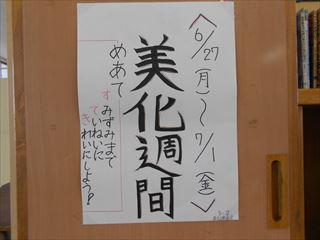 〈6/27(月)~7/1(金)〉
美化週間
めあて
すみずみまで
ていねいに
きれいにしよう!